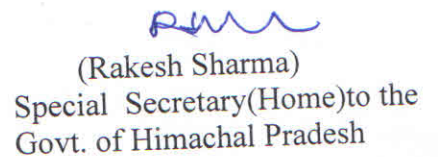 (Rakesh Sharma)
Special Secretary(Home)to the
Govt. of Himachal Pradesh